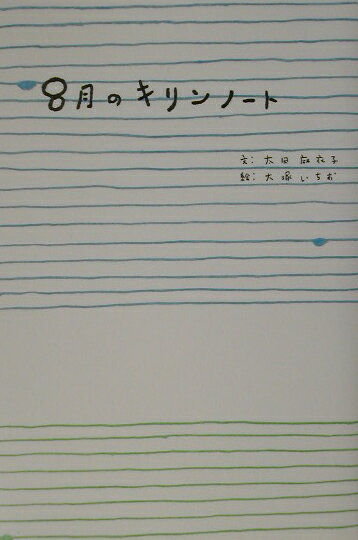 8月のキリンノート
文:太田麻衣子
絵:大塚いちお